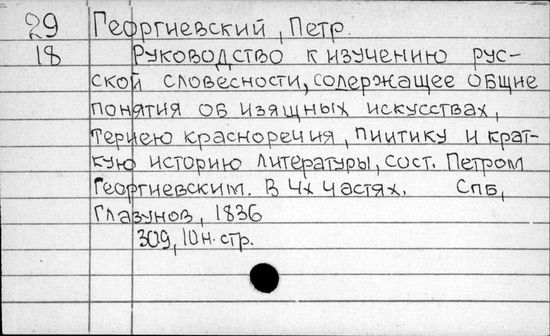 29 Георгиевский, Петр.
18 Руководство к изучению рус-
ской словесности, содержащее общие
понятия об изящных искусствах,
териею красноречия, пиитику и крат-
кую историю литературы, сост. Петром
Георгиевским. В 4х частях. Спб,
Глазунов, 1836
309, 10 н. стр.